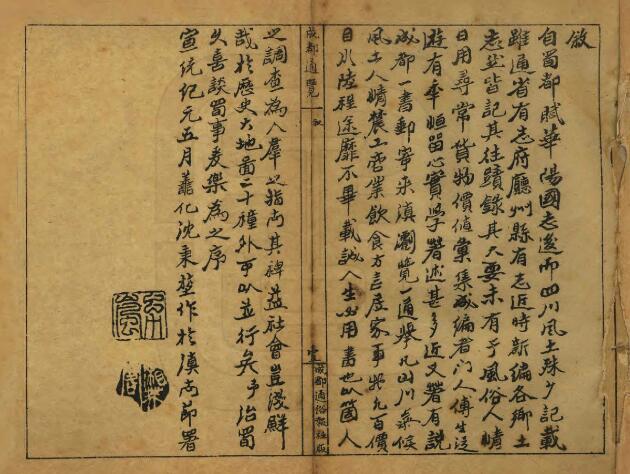 敘
自蜀都賦華陽國志後而四川風土殊少記載
雖通省有志府廳州縣有志近時新編各鄉土
志然皆記其往蹟錄其大要未有于風俗人情
日用尋常貨物價值彙集成編者門人傅生從
遊有年恒留心實學著述甚多近又著有說
成都一書郵寄來滇瀏覽一通舉凡山川氣候
風土人情農工商業飲食方言居家事凡百價
目水陸程途靡不畢載誠人生必用書也以箇人
成都通覽
敘
壹
成都通俗報社版
之調查為人羣之指南其裨益社會豈淺鮮
哉於歷史大地圖二十種外可以並行矣予治蜀
久喜談蜀事爰樂為之序
宣統紀元五月善化沈秉堃作於滇南節署